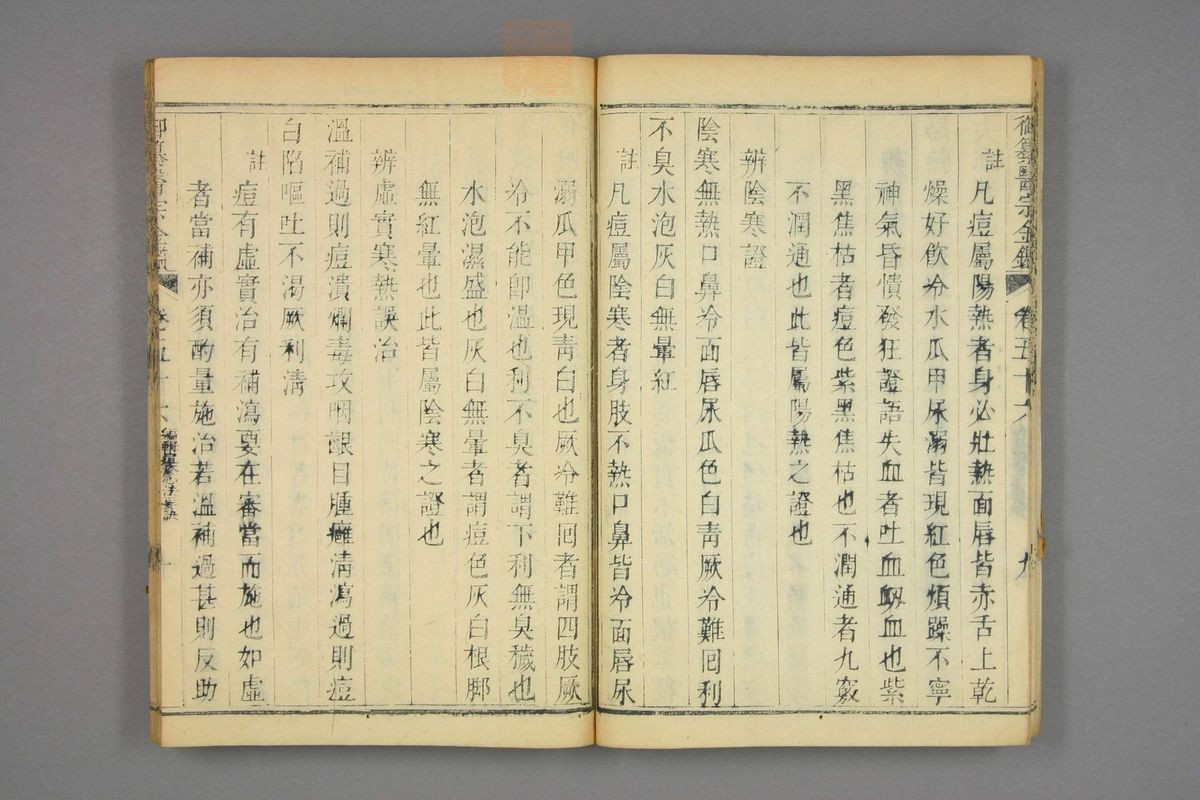 御纂醫宗金鑑 卷五十六 九
註 凡痘屬陽熱者身必壯熱面唇皆赤舌上乾
燥好飲冷水瓜甲尿溺皆現紅色煩躁不寧
神氣昏憒發狂證語失血者吐血衂血也紫
黑焦枯者痘色紫黑焦枯也不潤通者九竅
不潤通也此皆屬陽熱之證也
辨陰寒證
陰寒無熱口鼻冷面唇尿瓜色白青厥冷難回利
不臭水泡灰白無暈紅
註 凡痘屬陰寒者身肢不熱口鼻皆冷面唇尿
溺瓜甲色現青白也厥冷難回者謂四肢厥
冷不能即溫也利不臭者謂下利無臭穢也
水泡濕盛也灰白無暈者謂痘色灰白根脚
無紅暈也此皆屬陰寒之證也
辨虛實寒熱誤治
溫補過則痘潰爛毒攻咽齦目腫癰清瀉過則痘
白陷嘔吐不渴厥利清
註 痘有虛實治有補瀉要在審當而施也如虛
者當補亦須酌量施治若溫補過甚則反助
御纂醫宗金鑑